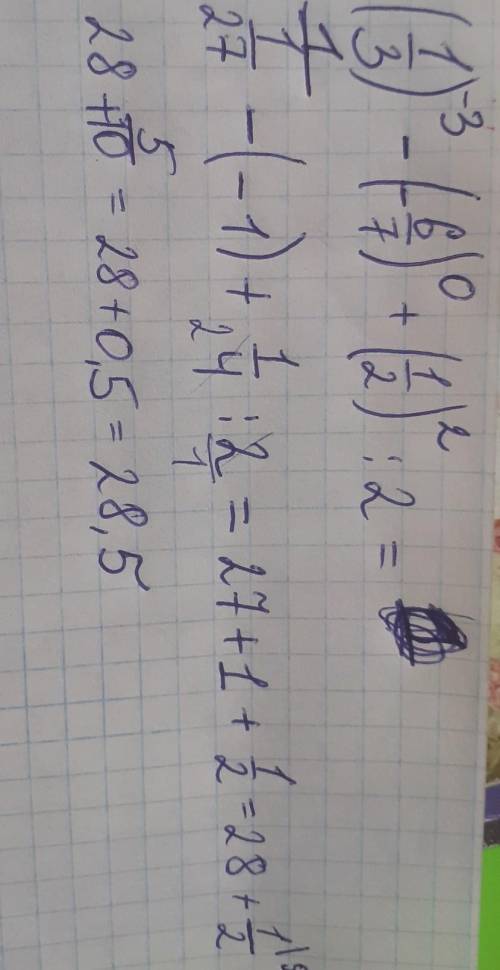 (1/3)^-3 - (-6/7)^0 + (1/2)^2 : 2 =
1/(1/27) - (-1) + 1/4 2 : 2/1 = 27 + 1 + 1/2 = 28 + 1/2 \5
28 + 5/10 = 28 + 0,5 = 28,5